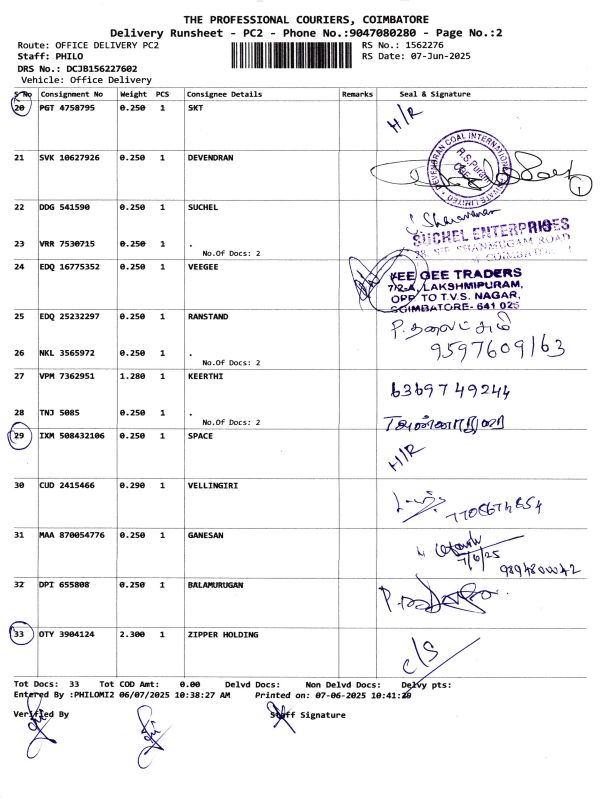 THE PROFESSIONAL COURIERS, COIMBATORE
Delivery Runsheet - PC2 - Phone No.:9047080280 - Page No.:2
Route: OFFICE DELIVERY PC2 RS No.: 1562276
Staff: PHILO RS Date: 07-Jun-2025
DRS No.: DCJB156227602
Vehicle: Office Delivery
S No Consignment No Weight PCS Consignee Details Remarks Seal & Signature
20 PGT 4758795 0.250 1 SKT H/R
21 SVK 10627926 0.250 1 DEVENDRAN
DEVENDRAN COAL INTERNATIONAL PRIVATE LIMITED
R.S.Puram
1
22 DDG 541590 0.250 1 SUCHEL
SUCHEL ENTERPRISES
SHANMUGAM ROAD
COIMBATORE
23 VRR 7530715 0.250 1 .
No.Of Docs: 2
24 EDQ 16775352 0.250 1 VEEGEE
VEE GEE TRADERS
7/2-A, LAKSHMIPURAM,
OPP TO T.V.S. NAGAR,
COIMBATORE- 641 025
25 EDQ 25232297 0.250 1 RANSTAND
9597609163
26 NKL 3565972 0.250 1 .
No.Of Docs: 2
27 VPM 7362951 1.280 1 KEERTHI 6369749244
28 TNJ 5085 0.250 1 .
No.Of Docs: 2
29 IXM 508432106 0.250 1 SPACE H/R
30 CUD 2415466 0.290 1 VELLINGIRI
31 MAA 870054776 0.250 1 GANESAN
7/6/25
32 DPI 655808 0.250 1 BALAMURUGAN
33 OTY 3904124 2.300 1 ZIPPER HOLDING C/S
Tot Docs: 33 Tot COD Amt: 0.00 Delvd Docs: Non Delvd Docs: Delvy pts:
Entered By :PHILOMI2 06/07/2025 10:38:27 AM Printed on: 07-06-2025 10:41:20
Verified By Staff Signature